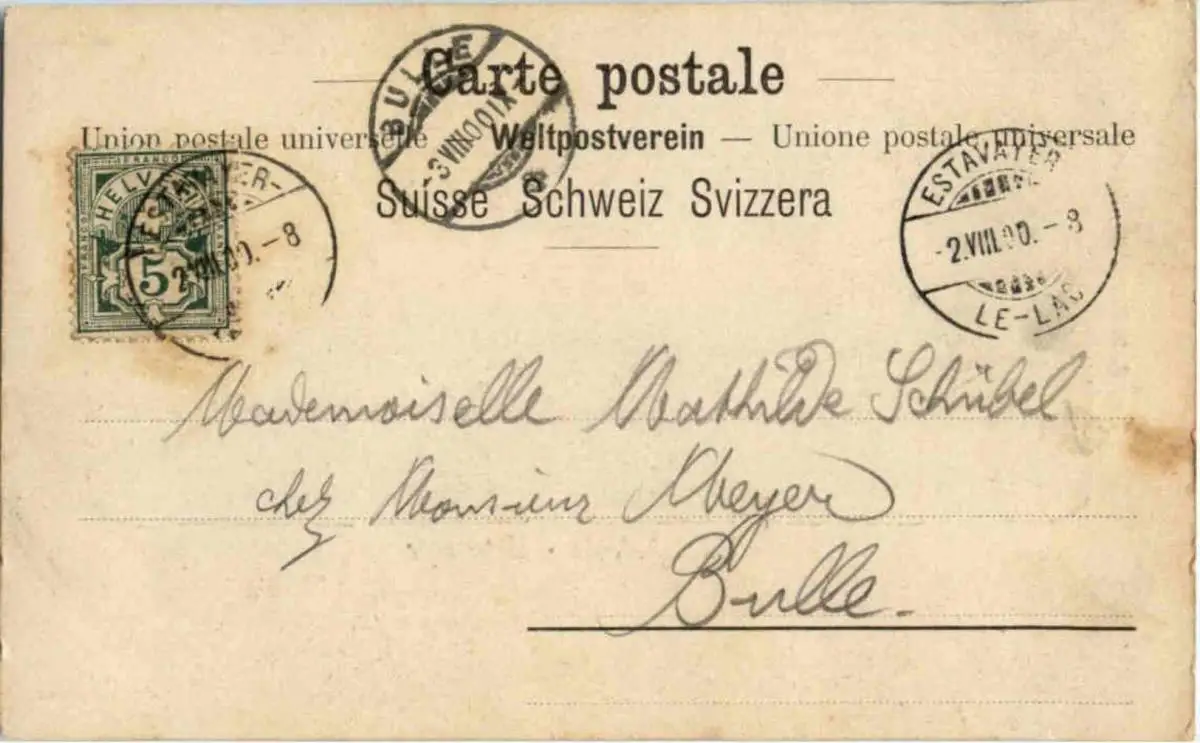 Carte postale
Union postale universelle — Weltpostverein — Unione postale universale
Suisse Schweiz Svizzera
BULLE
-3.VIII.00.IX-
FRANCO
HELVETIA
5
ESTAVAYER-
2.VIII.00.-8
ESTAVAYER
-2.VIII.00.-8
LE-LAC
Mademoiselle Mathilde Schübel
chez Monsieur Meyer
Bulle.